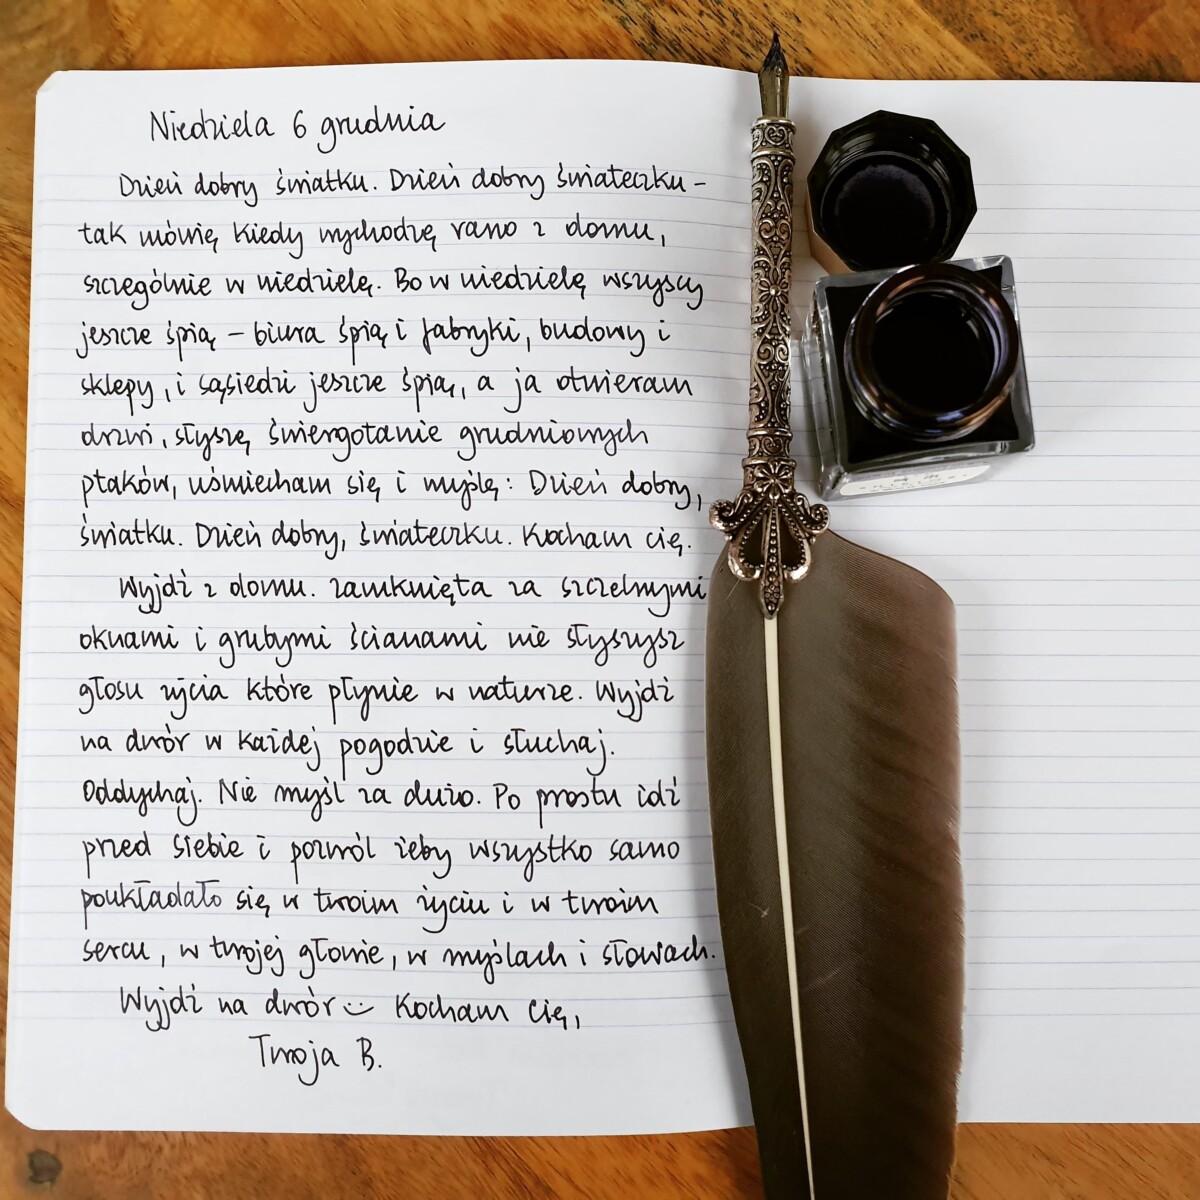 Niedziela 6 grudnia
Dzień dobry światku. Dzień dobry świateczku –
tak mówię kiedy wychodzę rano z domu,
szczególnie w niedzielę. Bo w niedzielę wszyscy
jeszcze śpią – biura śpią i fabryki, budowy i
sklepy, i sąsiedzi jeszcze śpią, a ja otwieram
drzwi, słyszę świergotanie grudniowych
ptaków, uśmiecham się i myślę: Dzień dobry,
światku. Dzień dobry, świateczku. Kocham cię.
Wyjdź z domu. Zamknięta za szczelnymi
oknami i grubymi ścianami nie słyszysz
głosu życia które płynie w naturze. Wyjdź
na dwór w każdej pogodzie i słuchaj.
Oddychaj. Nie myśl za dużo. Po prostu idź
przed siebie i pozwól żeby wszystko samo
poukładało się w twoim życiu i w twoim
sercu, w twojej głowie, w myślach i słowach.
Wyjdź na dwór Kocham Cię,
Twoja B.